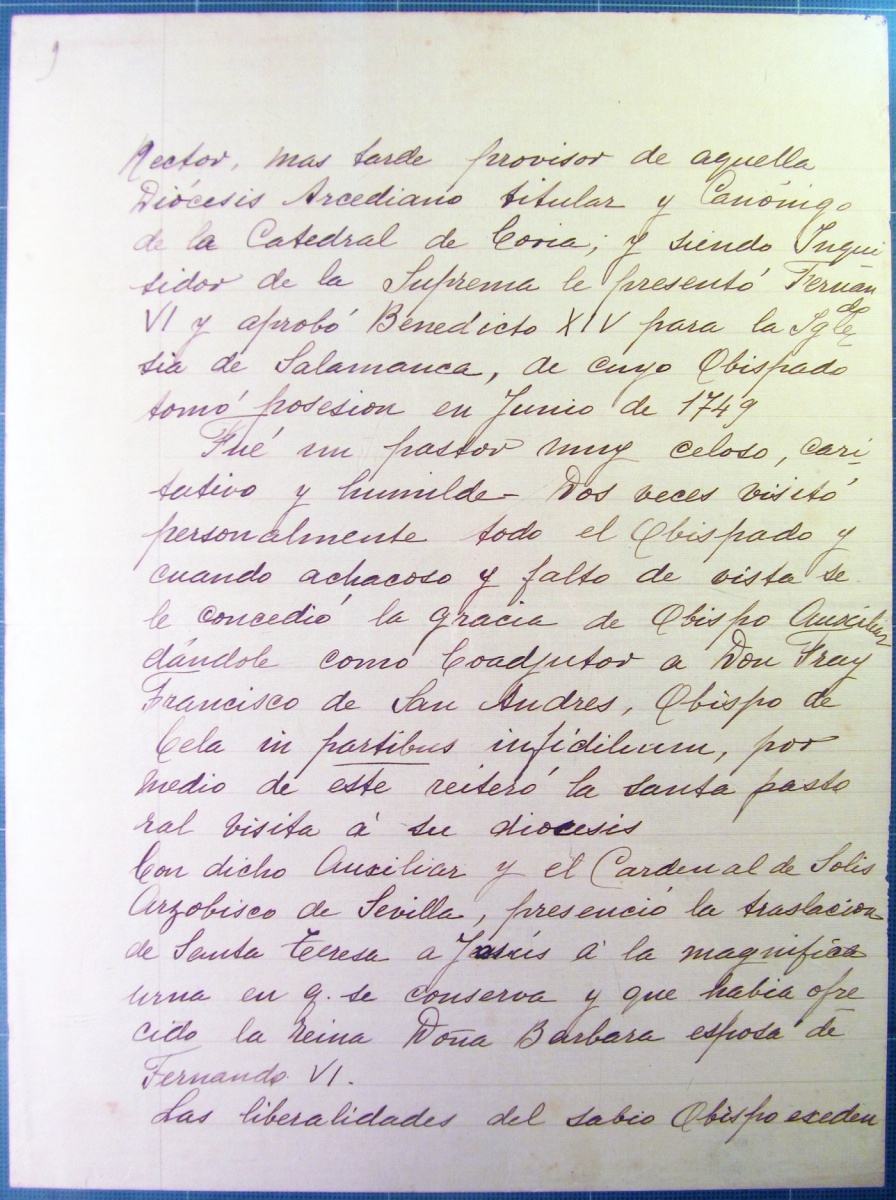 9
Rector, mas tarde provisor de aquella
Diócesis Arcediano titular y Canónigo
de la Catedral de Coria; y siendo Inqui
sidor de la Suprema le presentó Fernan
do
VI y aprobó Benedicto XIV para la Igle
sia de Salamanca, de cuyo Obispado
tomó posesion en Junio de 1749
Fué un pastor muy celoso, cari-
tativo y humilde - Dos veces visitó
personalmente todo el Obispado y
cuando achacoso y falto de vista se
le concedió la gracia de Obispo Auxiliar
dándole como Coadjutor a Don Fray
Francisco de San Andres, Obispo de
Cela in partibus infidilium, por
medio de este reiteró la santa pasto
ral visita á su diocesis
Con dicho Auxiliar y el Cardenal de Solis
Arzobisco de Sevilla, presenció la traslacion
de Santa Teresa a Jesús á la magnifica
urna en q. se conserva y que habia ofre
cido la reina Doña Barbara esposa de
Fernando VI.
Las liberalidades del sabio Obispo exeden